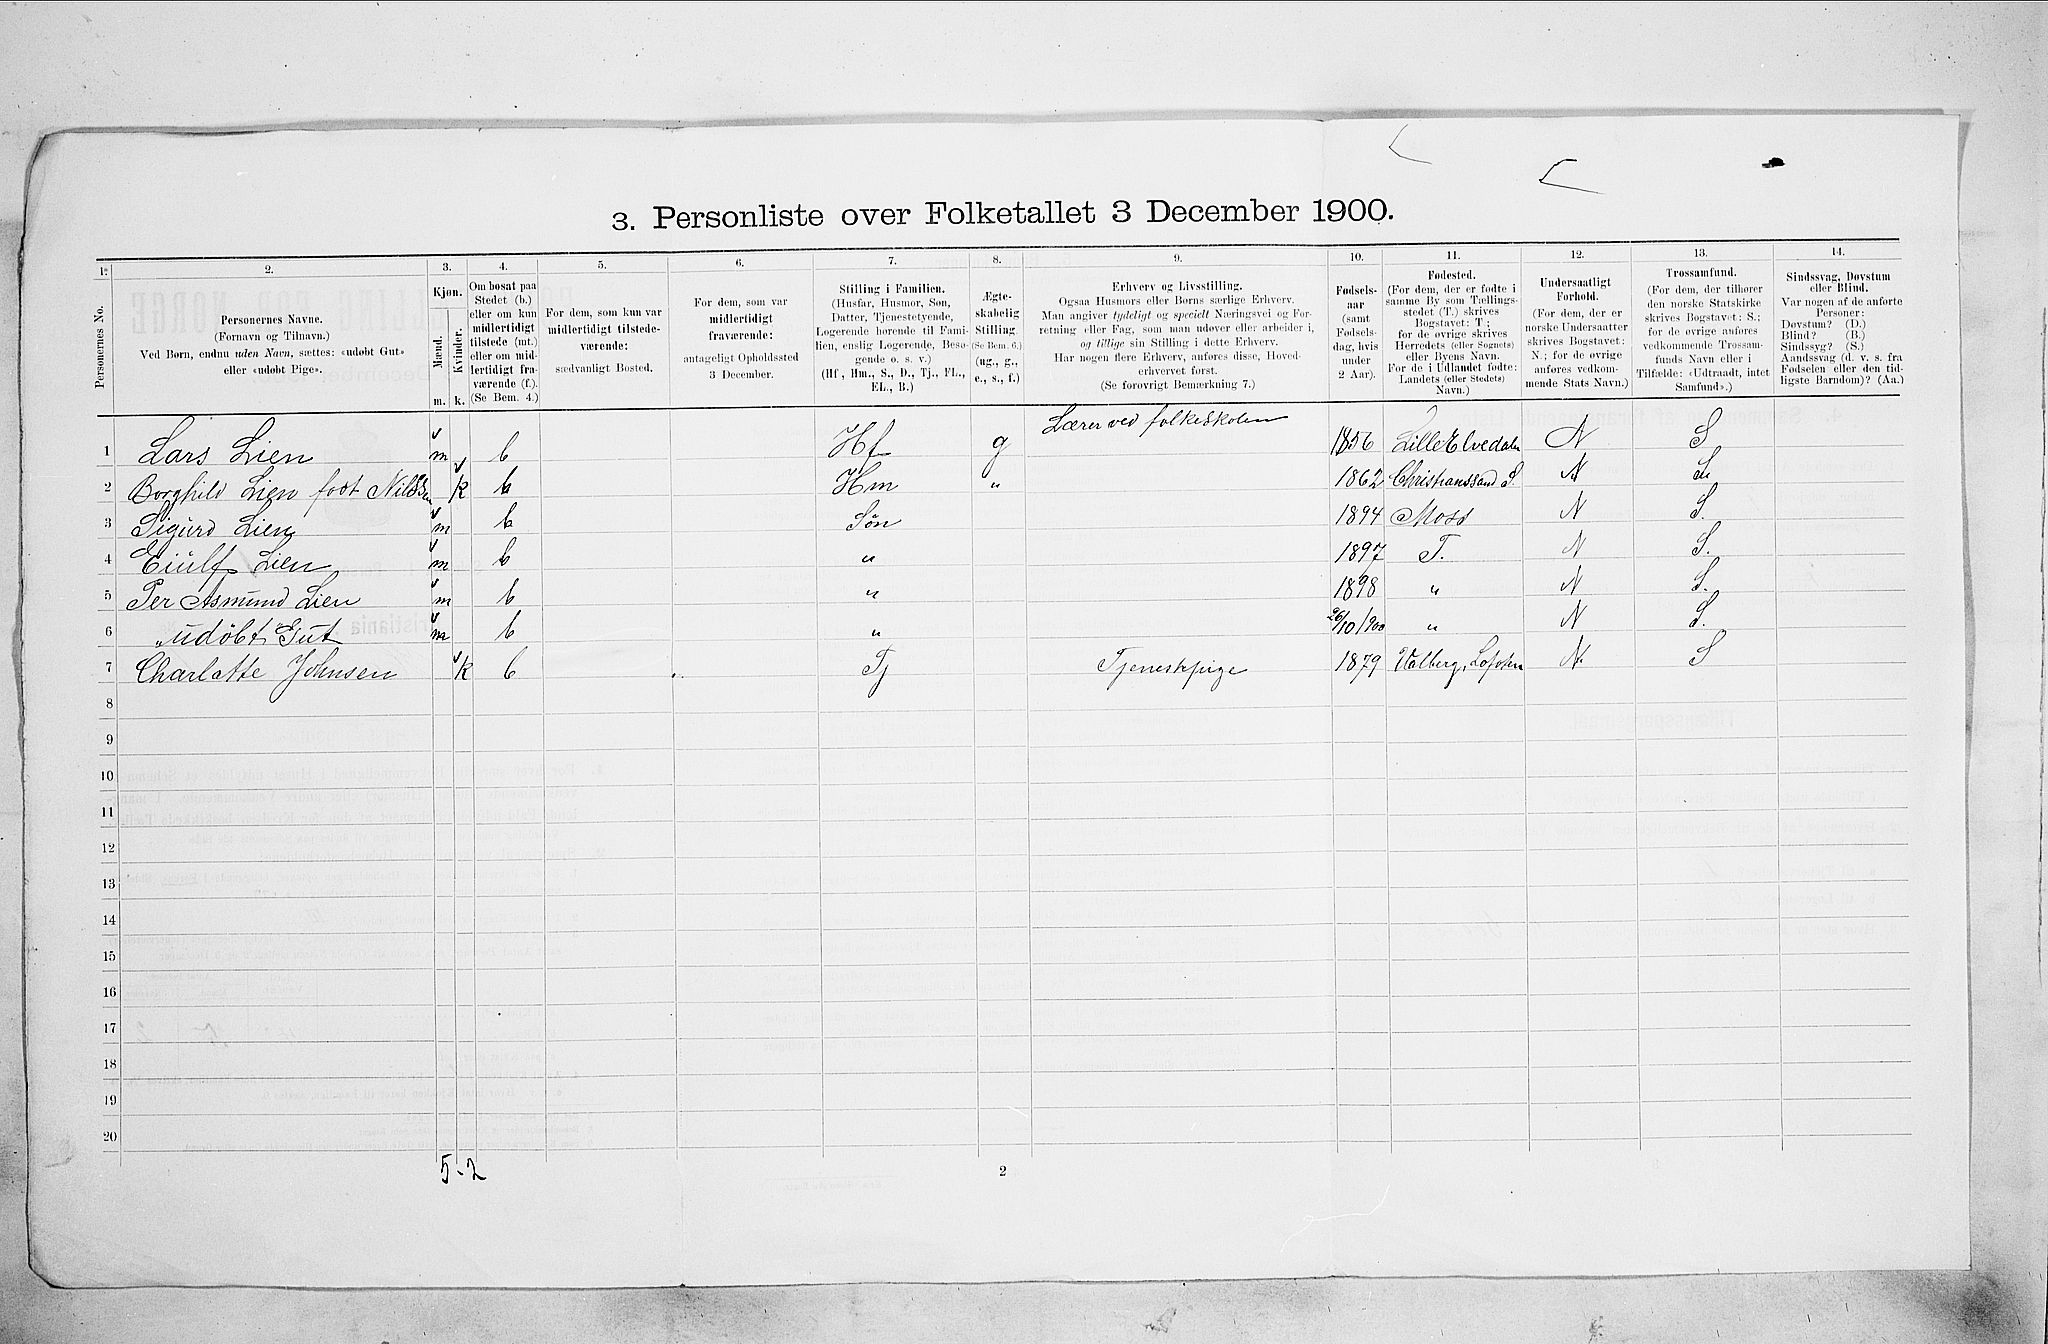 3. Personliste over Folketallet 3 December 1900.
1. 2. 3. 4. 5. 6. 7. 8. 9. 10. 11. 12. 13. 14.
Personernes No.
Personernes Navne.
(Fornavn og Tilnavn.)
Ved Børn, endnu uden Navn, sættes: «udøbt Gut»
eller «udøbt Pige».
Kjøn.
Mænd.
Kvinder.
m. k.
Om bosat paa
Stedet (b.)
eller om kun
midlertidigt
tilstede (mt.)
eller om mid-
lertidigt fra-
værende (f.).
(Se Bem. 4.)
For dem, som kun var
midlertidigt tilstede-
værende:
sædvanligt Bosted.
For dem, som var
midlertidigt
fraværende:
antageligt Opholdssted
3 December.
Stilling i Familien.
(Husfar, Husmor, Søn,
Datter, Tjenestetyende,
Logerende hørende til Fami-
lien, enslig Logerende, Besø-
gende o. s. v.)
(Hf., Hm., S., D., Tj., FL.,
EL., B.)
Ægte-
skabelig
Stilling.
(Se Bem. 6.)
(ug., g.,
e., s., f.)
Erhverv og Livsstilling.
Ogsaa Husmors eller Børns særlige Erhverv.
Man angiver tydeligt og specielt Næringsvei og For-
retning eller Fag, som man udøver eller arbeider i,
og tillige sin Stilling i dette Erhverv.
Har nogen flere Erhverv, anføres disse, Hoved-
erhvervet først.
(Se forøvrigt Bemærkning 7.)
Fødsels-
aar
(samt
Fødsels-
dag, hvis
under
2 Aar).
Fødested.
(For dem, der er fødte i
samme By som Tællings-
stedet (T.) skrives
Bogstavet: T.;
for de øvrige skrives
Herredets (eller Sognets)
eller Byens Navn.
For de i Udlandet fødte:
Landets (eller Stedets)
Navn.)
Undersaatligt
Forhold.
(For dem, der er
norske Undersaatter
skrives Bogstavet:
N.; for de øvrige
anføres vedkom-
mende Stats Navn.)
Trossamfund.
(For dem, der tilhører
den norske Statskirke
skrives Bogstavet: S.;
for de øvrige anføres
vedkommende Trossam-
funds Navn eller i
Tilfælde: «Udtraadt, intet
Samfund».)
Sindssvag, Døvstum
eller Blind.
Var nogen af de anførte
Personer:
Døvstum? (D.)
Blind? (B.)
Sindssyg? (S.)
Aandssvag (d. v. s. fra
Fødselen eller den tid-
ligste Barndom)? (Aa.)
1 Lars Lien m b Hf g Lærer ved folkeskolen 1856 Lille Elvedalen N S
2 Borghild Lien født Nilssen k b Hm " 1862 Christianssand S. N S.
3 Sigurd Lien m b Søn 1894 Moss N S.
4 Eiulf Lien m b " 1897 T. N S.
5 Per Asmund Lien m b " 1898 " N S.
6 "udøbt" Gut m b " 26/10/900 " N S.
7 Charlotte Johnsen k b Tj Tjenestpige 1879 Valberg, Lofoten N. S
8
9
10
11
12
13
14
15
16
17
18
19
20
5-2
2